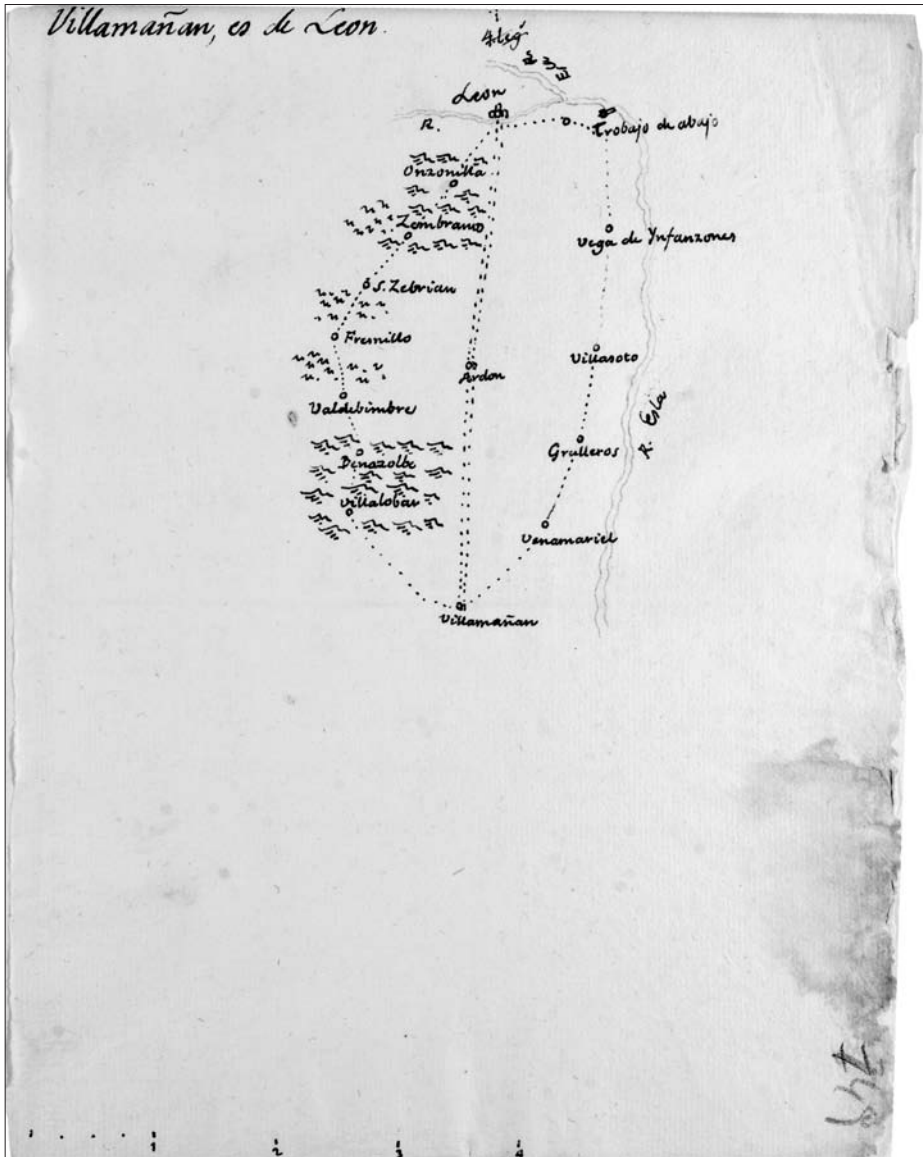 Villamañan, es de Leon.
4 leg.
Leon
R.
Trobajo de abajo
Onzonilla
Zembrano
Vega de Ynfanzones
S. Zebrian
Fresnillo
Villasoto
Ardon
Valdebimbre
R. Esla
Grulleros
Benazolbe
Villalobar
Venamariel
Villamañan
1 2 3 4